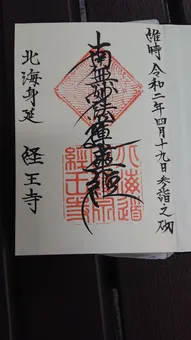 維時令和二年四月十九日参詣之砌
南無妙法蓮華経
北海身延
経王寺